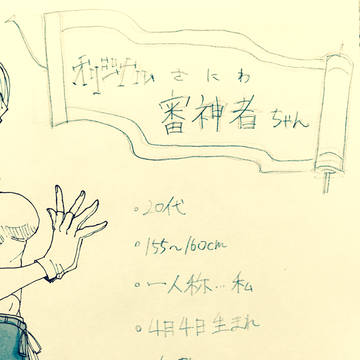 さにわ
審神者ちゃん
・20代
・155〜160cm
・一人称…私
・4月4日生まれ